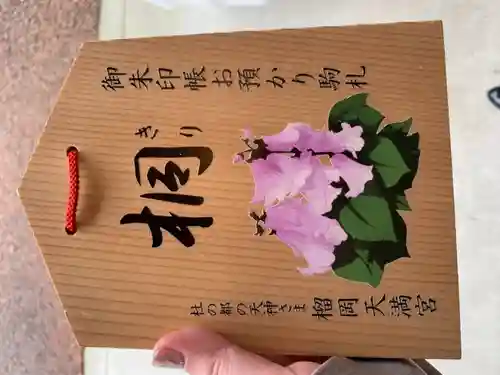 御朱印帳お預かり駒札
きり
桐
杜の都の天神さま
榴岡天満宮